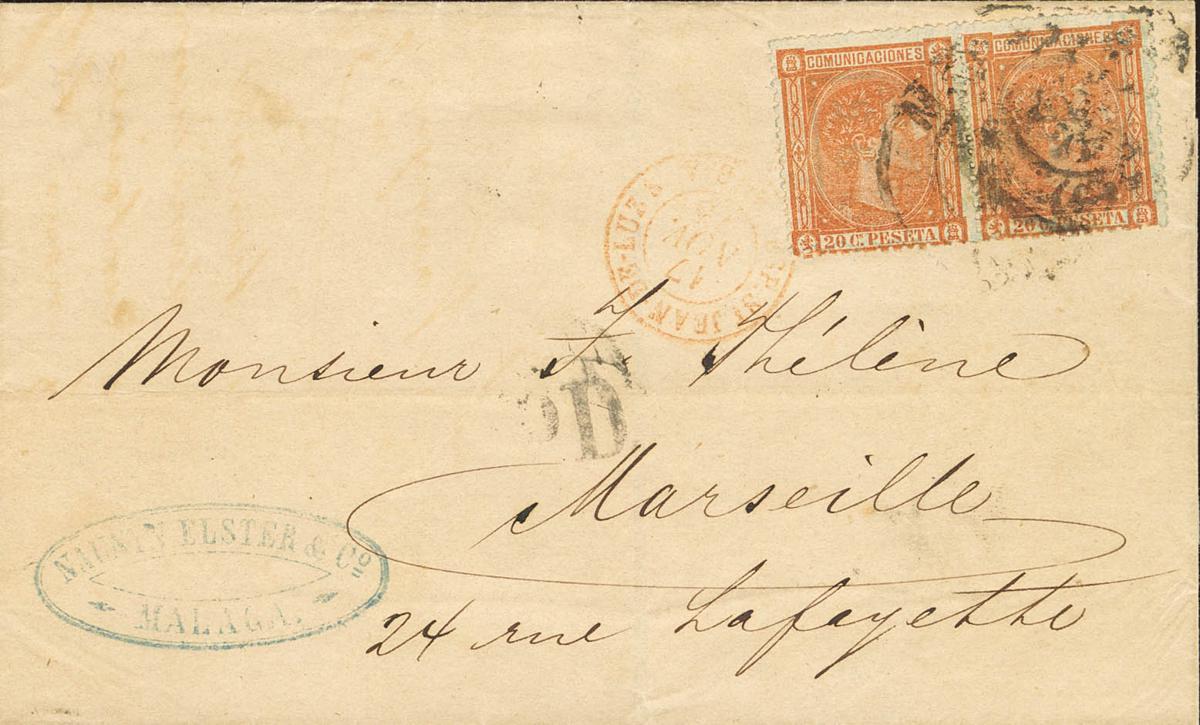 COMUNICACIONES COMUNICACIONES
20 C. PESETA 20 C. PESETA
ST JEAN-DE-LUZ
17
NOV
Monsieur J. Thélène
PD
Marseille
24 rue Lafayette
ELSTER & Cº
MALAGA.